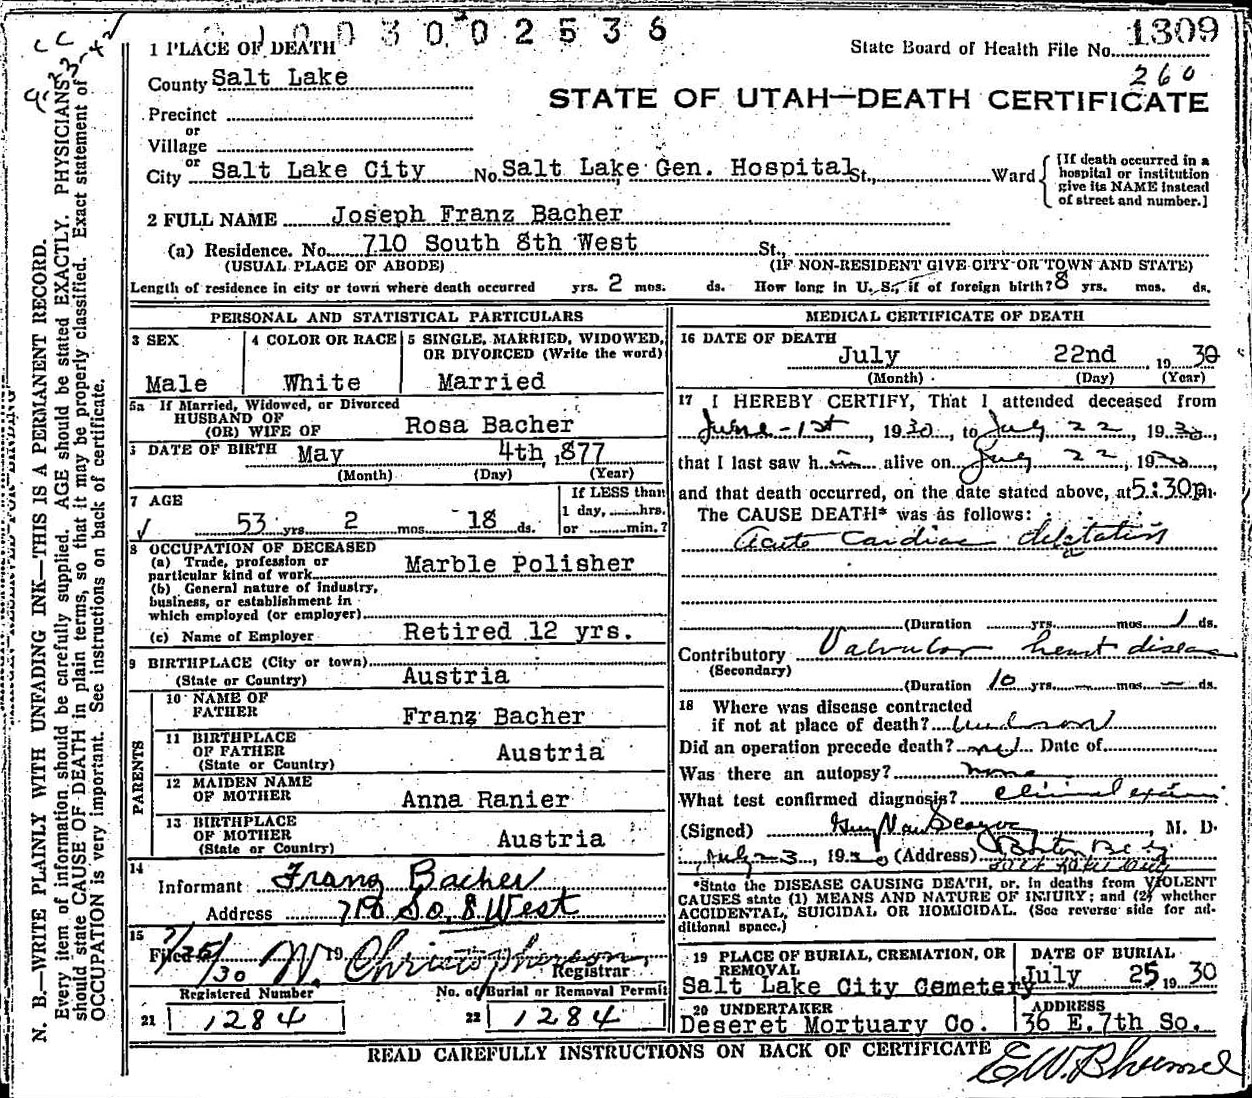 2 1 0 0 3 0 0 2 5 3 6
1 PLACE OF DEATH
State Board of Health File No. 1309
260
County Salt Lake
STATE OF UTAH—DEATH CERTIFICATE
Precinct
or
Village
or
City Salt Lake City No. Salt Lake Gen. Hospital St., Ward
[If death occurred in a hospital or institution give its NAME instead of street and number.]
2 FULL NAME Joseph Franz Bacher
(a) Residence. No. 710 South 8th West St.,
(USUAL PLACE OF ABODE) (IF NON-RESIDENT GIVE CITY OR TOWN AND STATE)
Length of residence in city or town where death occurred yrs. 2 mos. ds. How long in U. S., if of foreign birth? 8 yrs. mos. ds.
PERSONAL AND STATISTICAL PARTICULARS
3 SEX
Male
4 COLOR OR RACE
White
5 SINGLE, MARRIED, WIDOWED, OR DIVORCED (Write the word)
Married
5a If Married, Widowed, or Divorced
HUSBAND OF
(OR) WIFE OF Rosa Bacher
DATE OF BIRTH May 4th, 877
(Month) (Day) (Year)
7 AGE
53 yrs. 2 mos. 18 ds.
If LESS than
1 day, hrs.
or min.?
8 OCCUPATION OF DECEASED
(a) Trade, profession or
particular kind of work Marble Polisher
(b) General nature of industry,
business, or establishment in
which employed (or employer)
(c) Name of Employer Retired 12 yrs.
9 BIRTHPLACE (City or town)
(State or Country) Austria
PARENTS
10 NAME OF
FATHER Franz Bacher
11 BIRTHPLACE
OF FATHER Austria
(State or Country)
12 MAIDEN NAME
OF MOTHER Anna Ranier
13 BIRTHPLACE
OF MOTHER Austria
(State or Country)
14
Informant Franz Bacher
Address 710 So. 8 West
15
Filed 7/25/30 19 W. Christopherson
Registrar
Registered Number
21 1284
No. of Burial or Removal Permit
22 1284
MEDICAL CERTIFICATE OF DEATH
16 DATE OF DEATH
July 22nd, 19 30
(Month) (Day) (Year)
17 I HEREBY CERTIFY, That I attended deceased from
June - 1st, 1930, to July 22, 1930,
that I last saw him alive on July 22, 1930,
and that death occurred, on the date stated above, at 5:30p m.
The CAUSE DEATH* was as follows:
Acute Cardiac dilatation
(Duration yrs. mos. 1 ds.
Contributory Valvular heart disease
(Secondary)
(Duration 10 yrs. — mos. — ds.
18 Where was disease contracted
if not at place of death?
Did an operation precede death? no Date of
Was there an autopsy? none
What test confirmed diagnosis? clinical exam
(Signed) , M. D.
July 23, 1930 (Address) Boston Bldg
Salt Lake City
*State the DISEASE CAUSING DEATH, or, in deaths from VIOLENT
CAUSES state (1) MEANS AND NATURE OF INJURY; and (2) whether
ACCIDENTAL, SUICIDAL OR HOMICIDAL. (See reverse side for ad-
ditional space.)
19 PLACE OF BURIAL, CREMATION, OR
REMOVAL
Salt Lake City Cemetery
DATE OF BURIAL
July 25 19 30
20 UNDERTAKER
Deseret Mortuary Co.
ADDRESS
36 E. 7th So.
READ CAREFULLY INSTRUCTIONS ON BACK OF CERTIFICATE
N. B.—WRITE PLAINLY WITH UNFADING INK—THIS IS A PERMANENT RECORD.
Every item of information should be carefully supplied. AGE should be stated EXACTLY. PHYSICIANS
should state CAUSE OF DEATH in plain terms, so that it may be properly classified. Exact statement of
OCCUPATION is very important. See instructions on back of certificate.